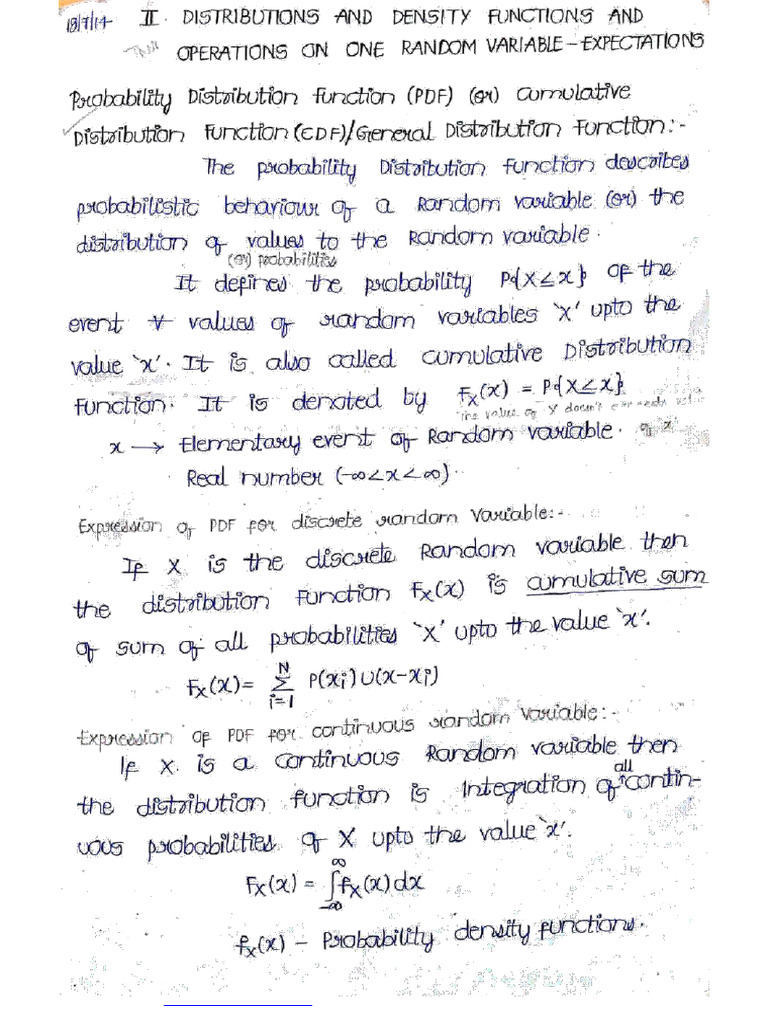 18/7/14 II. DISTRIBUTIONS AND DENSITY FUNCTIONS AND
OPERATIONS ON ONE RANDOM VARIABLE - EXPECTATIONS
Probability Distribution function (PDF) (or) Cumulative
Distribution Function (CDF)/General Distribution Function:-
The probability Distribution function describes
probabilistic behaviour of a Random variable (or) the
distribution of values to the Random variable.
(or) probabilities
It defines the probability P{X≤x} of the
event ∀ values of random variables 'X' upto the
value 'x'. It is also called cumulative Distribution
function. It is denoted by Fₓ(x) = P{X≤x}
The value of X doesn't exceeds
x → Elementary event of Random variable. of x
Real number (-∞<x<∞).
Expression of PDF for discrete random variable:-
If X is the discrete Random variable then
the distribution function Fₓ(x) is cumulative sum
of sum of all probabilities 'X' upto the value 'x'.
Fₓ(x) = N Σ i=1 P(xi) U(x-xi)
Expression of PDF for continuous random variable:-
If X is a continuous Random variable then
all
the distribution function is Integration of contin-
uous probabilities of X upto the value 'x'.
Fₓ(x) = ∞ ∫ -∞ fₓ(x) dx
fₓ(x) - Probability density functions.